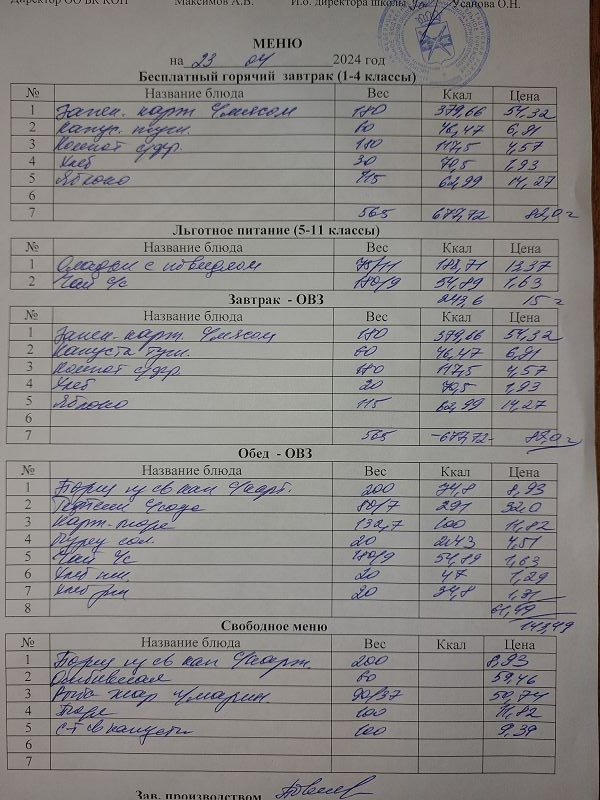 Директор ОО БК КОП Максимов А.В. И.о. директора школы Усанова О.Н.
МЕНЮ
на 23 04 2024 год
Бесплатный горячий завтрак (1-4 классы)
№ Название блюда Вес Ккал Цена
1 Запек. карт. с/мясом 180 379,66 54,32
2 Капус. туш. 60 46,47 6,91
3 Компот с/фр. 180 117,5 4,57
4 Хлеб 30 70,5 1,93
5 Яблоко 115 62,99 14,27
6
7 565 677,72 82,0
Льготное питание (5-11 классы)
№ Название блюда Вес Ккал Цена
1 Оладьи с повидлом 75/11 188,71 13,37
2 Чай с/с 180/9 54,89 1,63
243,6 15
Завтрак - ОВЗ
№ Название блюда Вес Ккал Цена
1 Запек. карт. с/мясом 180 379,66 54,32
2 Капуста туш. 60 46,47 6,91
3 Компот с/фр. 180 117,5 4,57
4 Хлеб 20 70,5 1,93
5 Яблоко 115 62,99 14,27
6
7 565 -677,72- 82,0
Обед - ОВЗ
№ Название блюда Вес Ккал Цена
1 Борщ из св кап с/карт. 200 74,8 8,93
2 80/7 291 32,0
3 Карт. пюре 132,7 100 11,82
4 сол. 20 2,43 4,51
5 Чай с/с 180/9 54,89 1,63
6 Хлеб пш. 20 47 1,29
7 Хлеб рж 20 34,8 1,31
8 61,49
143,49
Свободное меню
№ Название блюда Вес Ккал Цена
1 Борщ из св кап с/карт. 200 8,93
2 80 59,46
3 Рыба жар с/марин. 90/37 50,74
4 Пюре 100 11,82
5 с-т св капусты 100 9,39
6
7
Зав. производством